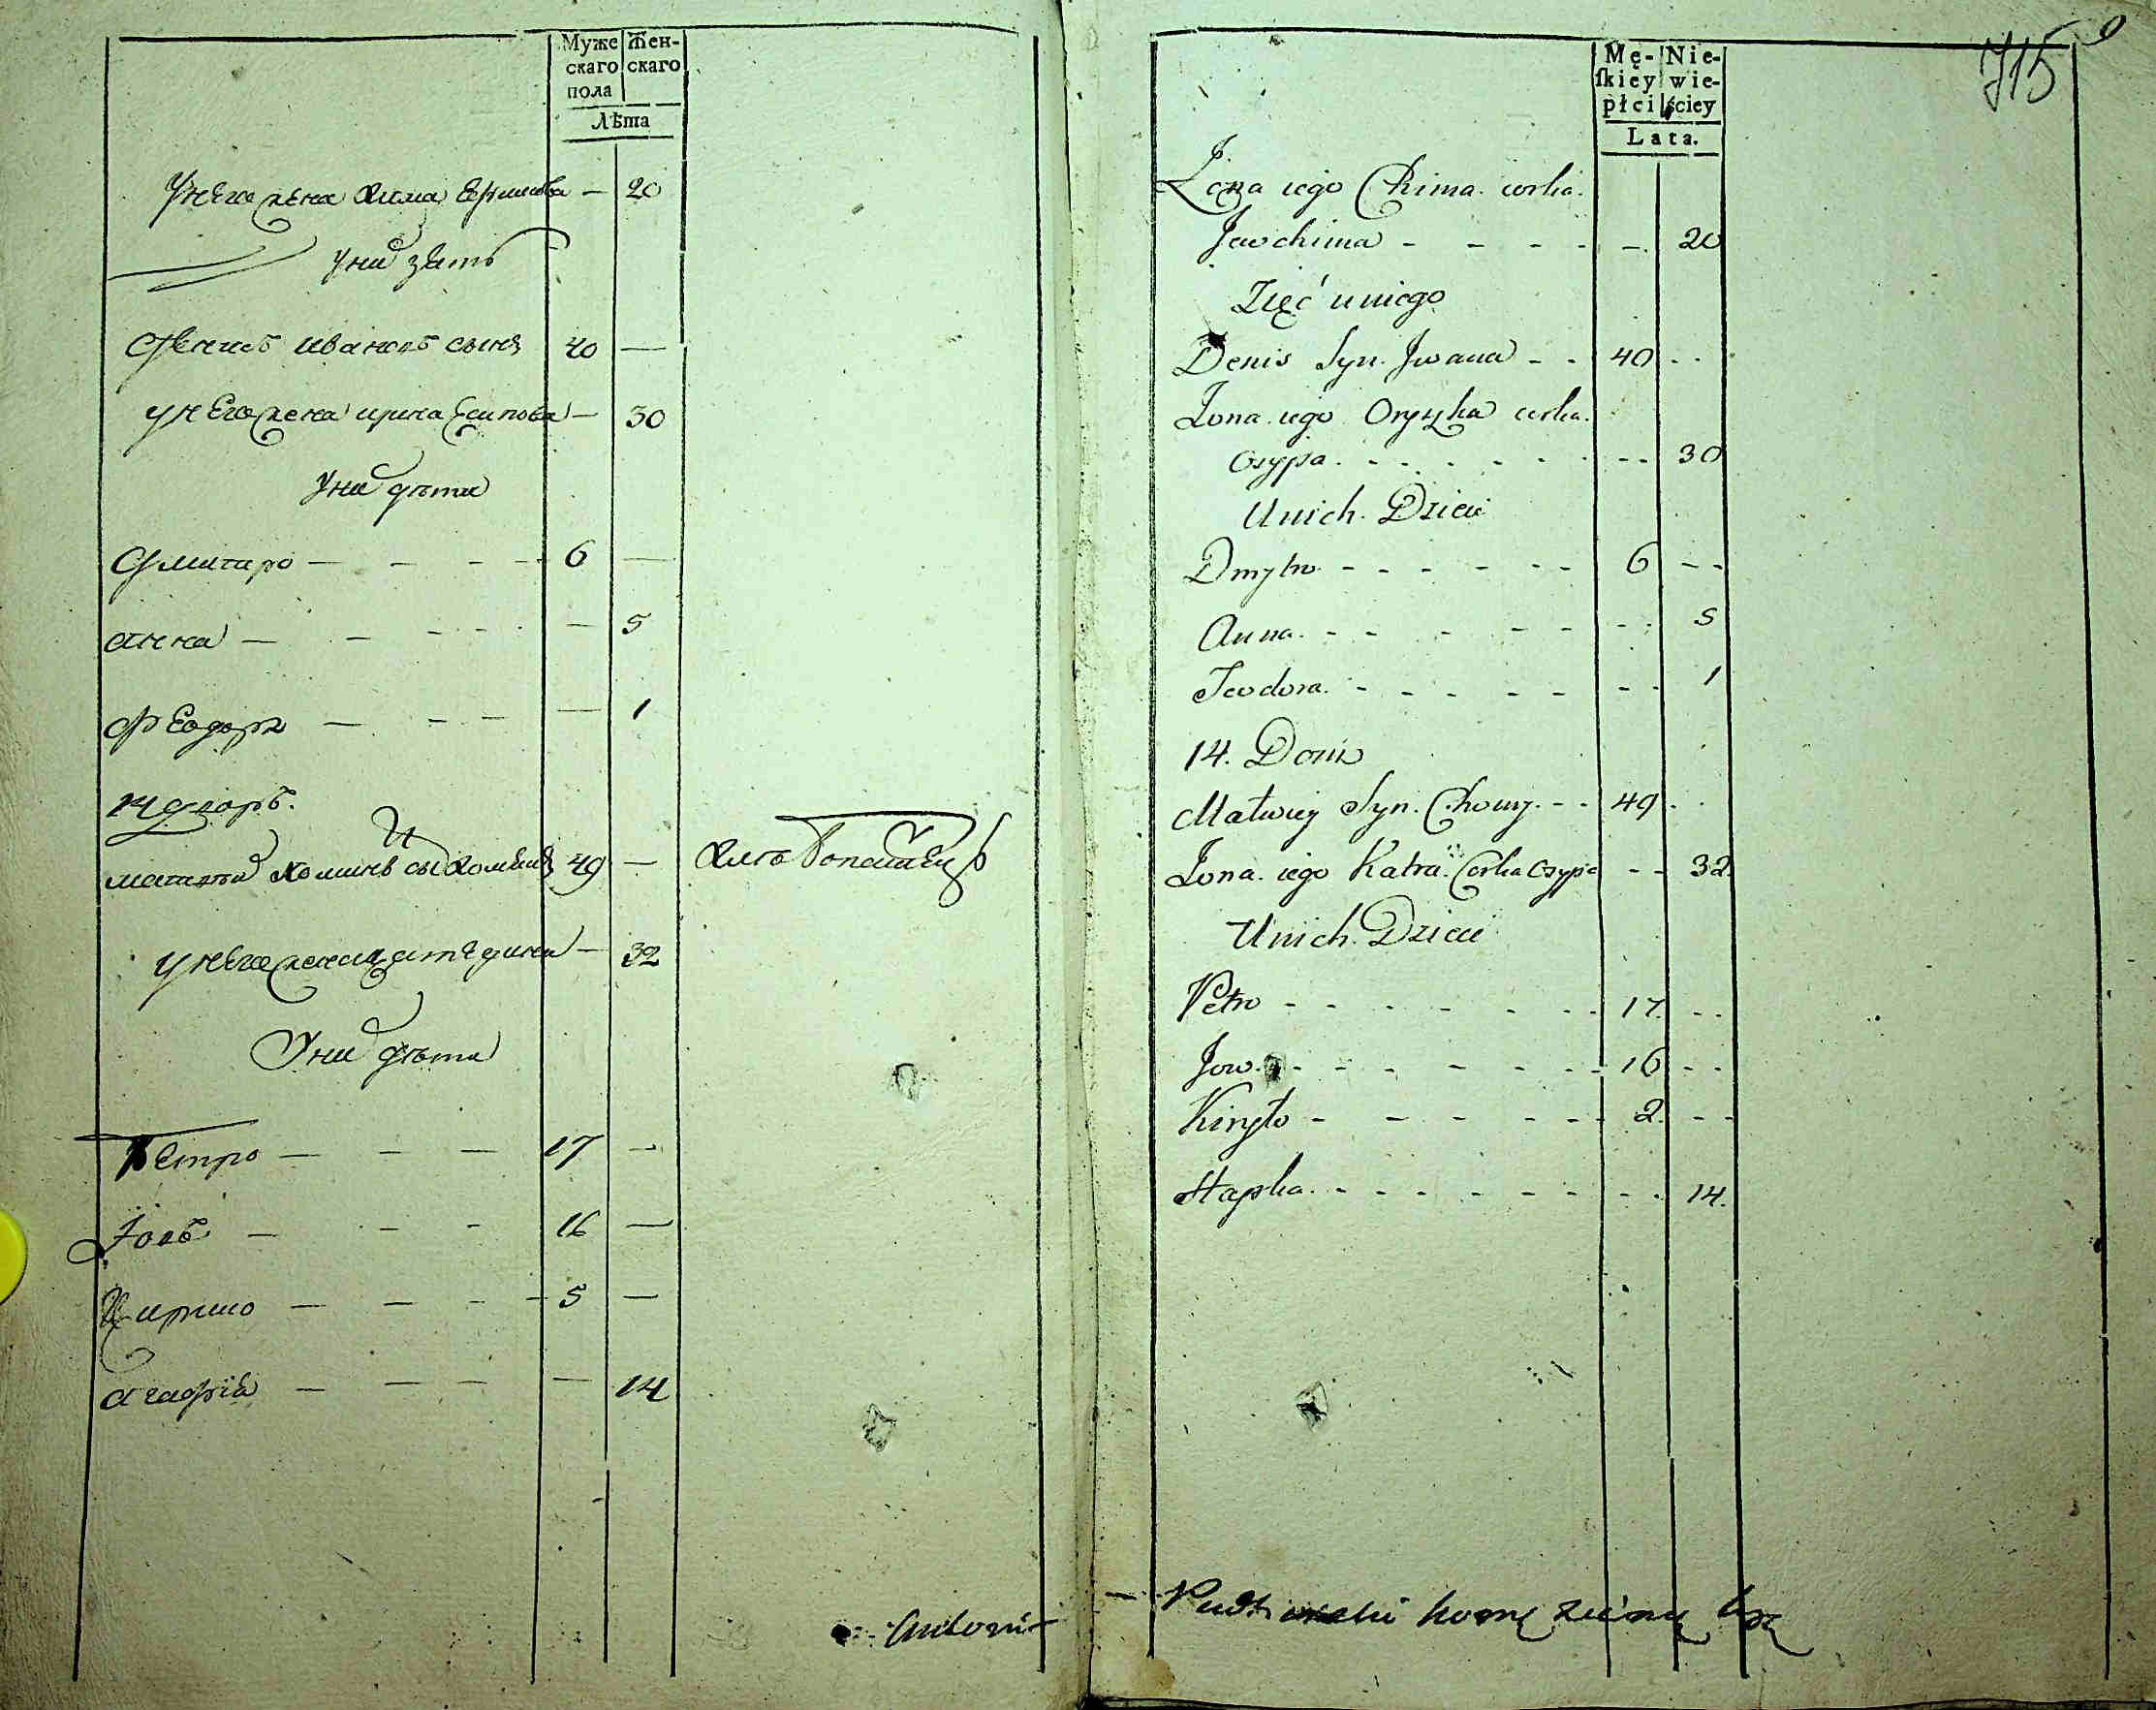 Муже
скаго
пола
Жен-
скаго
Лѣта
у него жена Хима Ефимова — 20
у них зять
Денисъ Ивановъ сынъ 40 —
у него жена Ирина Есипова — 30
у них дѣти
Дмитро — — — — 6 —
Анна — — — — — 5
Феодора — — — — 1
14 дворъ.
Матвей Хоминъ сынъ 49 —
у него жена Катерина — 32
у них дѣти
Петро — — — 17 —
Іовъ — — — 16 —
Кирило — — — — 5 —
Агафіа — — — — 14
Antoni
715
9
Mę-
ſkiey
płci
Nie-
wie-
ściey
Lata.
Żona iego Chima corka
Jewchima - - - - - 20
Zięć u niego
Denis Syn Jwana - - 40 - -
Żona iego Oryszka corka
Osypa - - - - - - - - 30
U nich Dzieci
Dmytro - - - - - - 6 - -
Anna - - - - - - - 5
Teodora - - - - - - - 1
14. Dom
Matwiey Syn Chomy - - 49 - -
Żona iego Katra Corka Osypa - - 32
U nich Dzieci
Petro - - - - - - 17 - -
Jow - - - - - - 16 - -
Kiryło - - - - - - 2 - -
Hapka - - - - - - - - 14.